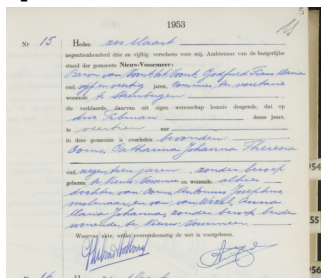 1953
Nr 15 Heden zes Maart
negentienhonderd drie en vijftig verscheen voor mij, Ambtenaar van de burgerlijke
stand der gemeente Nieuw-Vossemeer:
Baron van Voorst tot Voorst, Godfried Frans Maria
oud vijf en veertig jaren, commies ter secretarie
wonende te Steenbergen
die verklaarde, daarvan uit eigen wetenschap kennis dragende, dat op
drie Februari dezes jaars,
te veertien uur
in deze gemeente is overleden bevonden:
Ooms, Catharina Johanna Theresia
oud negentien jaren, zonder beroep
geboren te Nieuw-Vossemeer en wonende alhier
dochter van Ooms, Antonius Josephus
molenaar en van
Maria Johanna, zonder beroep beiden
wonende te Nieuw-Vossemeer
Waarvan akte, welke overeenkomstig de wet is voorgelezen.